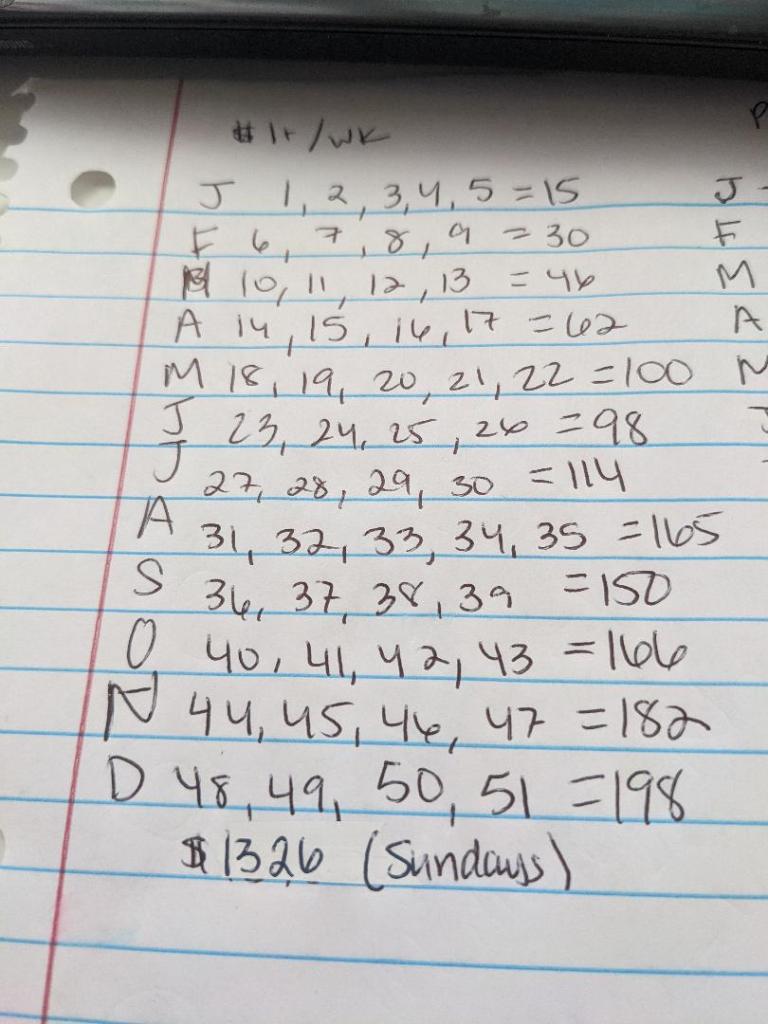 $1+/wk
J 1, 2, 3, 4, 5 = 15
F 6, 7, 8, 9 = 30
M 10, 11, 12, 13 = 46
A 14, 15, 16, 17 = 62
M 18, 19, 20, 21, 22 = 100
J 23, 24, 25, 26 = 98
J 27, 28, 29, 30 = 114
A 31, 32, 33, 34, 35 = 165
S 36, 37, 38, 39 = 150
O 40, 41, 42, 43 = 166
N 44, 45, 46, 47 = 182
D 48, 49, 50, 51 = 198
$1326 (Sundays)
P
J -
F
M
A
M
J